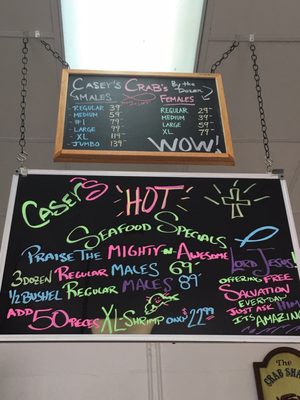 CASEY'S CRAB'S By the DOZEN
MALES FEMALES
REGULAR 39 REGULAR 29
MEDIUM 59 MEDIUM 39
#1 79 LARGE 59
LARGE 99 XL 79
XL 119
JUMBO 139 WOW!
CASEY'S HOT
SEAFOOD SPECIALS
PRAISE THE MIGHTY-N-AWESOME LORD JESUS
3 DOZEN REGULAR MALES 69
1/2 BUSHEL REGULAR MALES 89
ADD 50 PIECES XL-SHRIMP ONLY $22.99
OFFERING FREE
SALVATION
EVERYDAY
JUST ASK HIM
ITS AMAZING
The
CRAB SHA